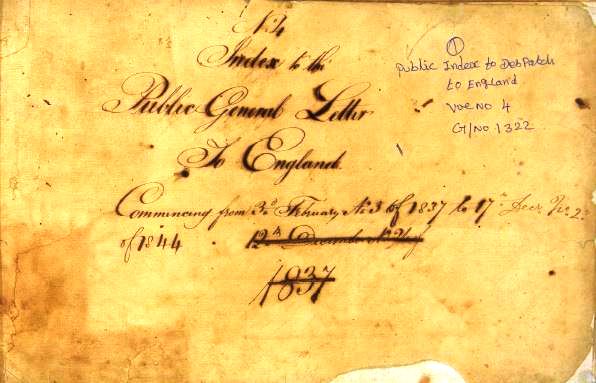 No 4
Index to the
Public General Letter
To England.
Commencing from 3d February No 3 of 1837 to 17th Decr No 2
of 1844 12th December No 21 of
1837
1
Public Index to Despatch
to England
Vol No 4
G/No 1322